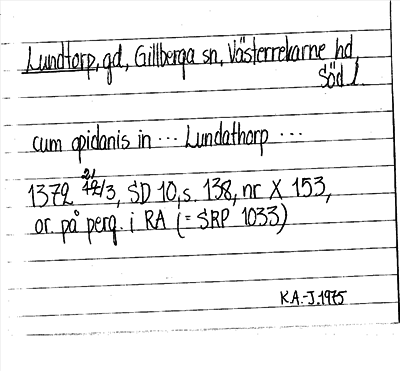 Lundtorp, gd, Gillberga sn, Västerrekarne hd
Söd l.
cum opidanis in ... Lundathorp ...
1372 21/3, SD 10, s. 138, nr X 153,
or. på perg. i RA (= SRP 1033)
K.A.-J. 1975